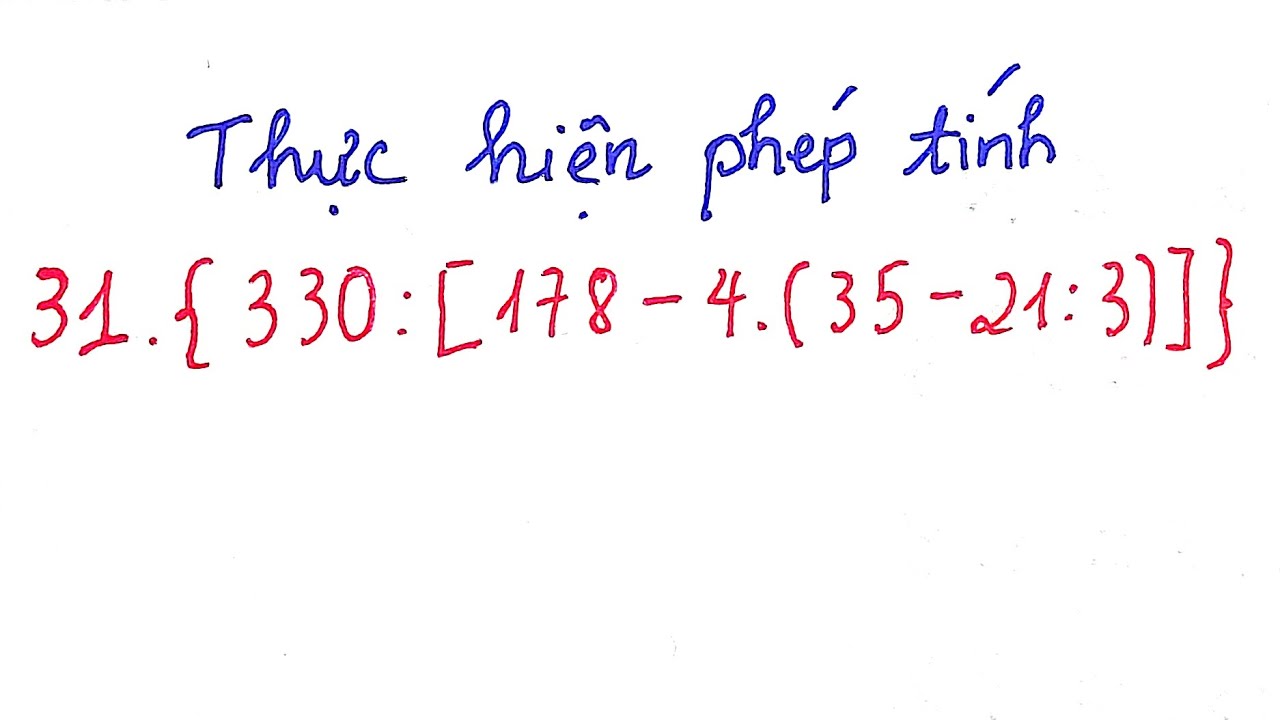 Thực hiện phép tính
31.{330:[178-4.(35-21:3)]}